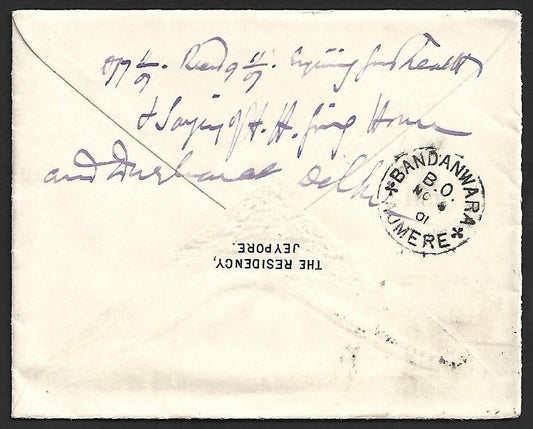 of 7/11/01. Recd 9/11/01. Enquiring for health
& saying of H. H. going Home
and Durbar at Delhi
BANDANWARA
B.O.
NO 8
01
AJMERE
THE RESIDENCY,
JEYPORE.